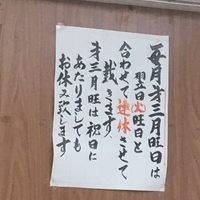 毎月才三月旺日は
翌日火旺日と
合わせて連休させて
戴きます、
才三月旺は祝日に
あたりましても
お休み致します